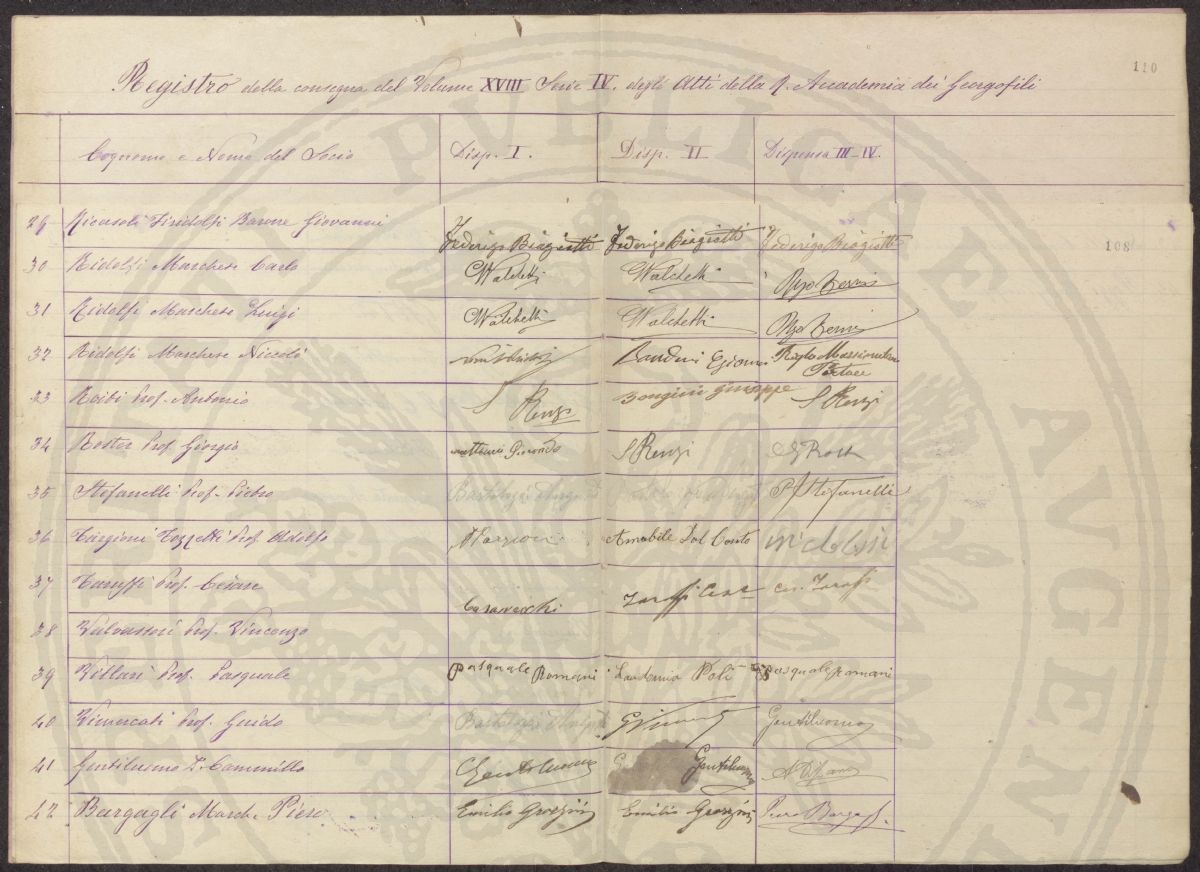 110
Registro della consegna del Volume XVIII Serie IV. degli Atti della R. Accademia dei Georgofili
Cognome e Nome del Socio Disp. I. Disp. II Dispensa III-IV.
29 Ricasoli Firidolfi Barone Giovanni Federigo Biagiotti Federigo Biagiotti Federigo Biagiotti
108
30 Ridolfi Marchese Carlo Walchetti Walchetti
31 Ridolfi Marchese Luigi Walchetti Walchetti
32 Ridolfi Marchese Niccolò Bandini
33 Roiti Prof. Antonio S Renzi Giuseppe S Renzi
34 Roster Prof. Giorgio S Renzi
35 Stefanelli Prof. Pietro P. Stefanelli
36 Targioni Tozzetti Prof. Adolfo Targioni Amabile Dal Conto
37 Taruffi Prof. Cesare Casavecchi Taruffi Ces. Taruffi
38 Valvassori Prof. Vincenzo
39 Villari Prof. Pasquale Pasquale Romani Poli Pasquale Romani
40 Vimercati Prof. Guido GVimercati Gentiluomo
41 Gentiluomo Dr. Cammillo Gentiluomo Gentiluomo
42 Bargagli March. Piero Emilio Grazzini Emilio Grazzini Piero Bargagli